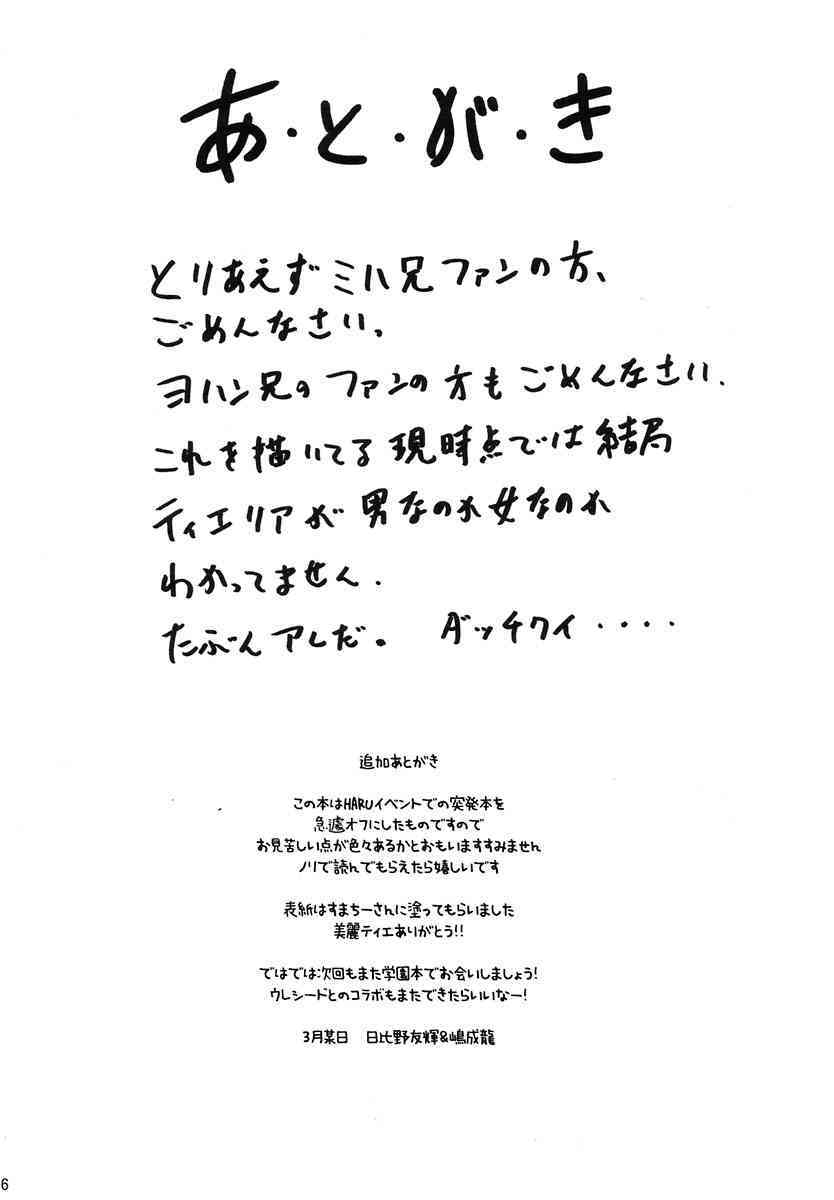 あ・と・が・き
とりあえずミハ兄ファンの方、
ごめんなさい。
ヨハン兄のファンの方もごめんなさい.
これを描いてる現時点では結局
ティエリアが男なのか女なのか
わかってません.
たぶんアレだ。 ダッチワイ・・・・
追加あとがき
この本はHARUイベントでの突発本を
急遽オフにしたものですので
お見苦しい点が色々あるかとおもいますすみません
ノリで読んでもらえたら嬉しいです
表紙はすまちーさんに塗ってもらいました
美麗ティエありがとう!!
ではでは次回もまた学園本でお会いしましょう!
ウレシードとのコラボもまたできたらいいなー!
3月某日 日比野友輝&嶋成龍
6